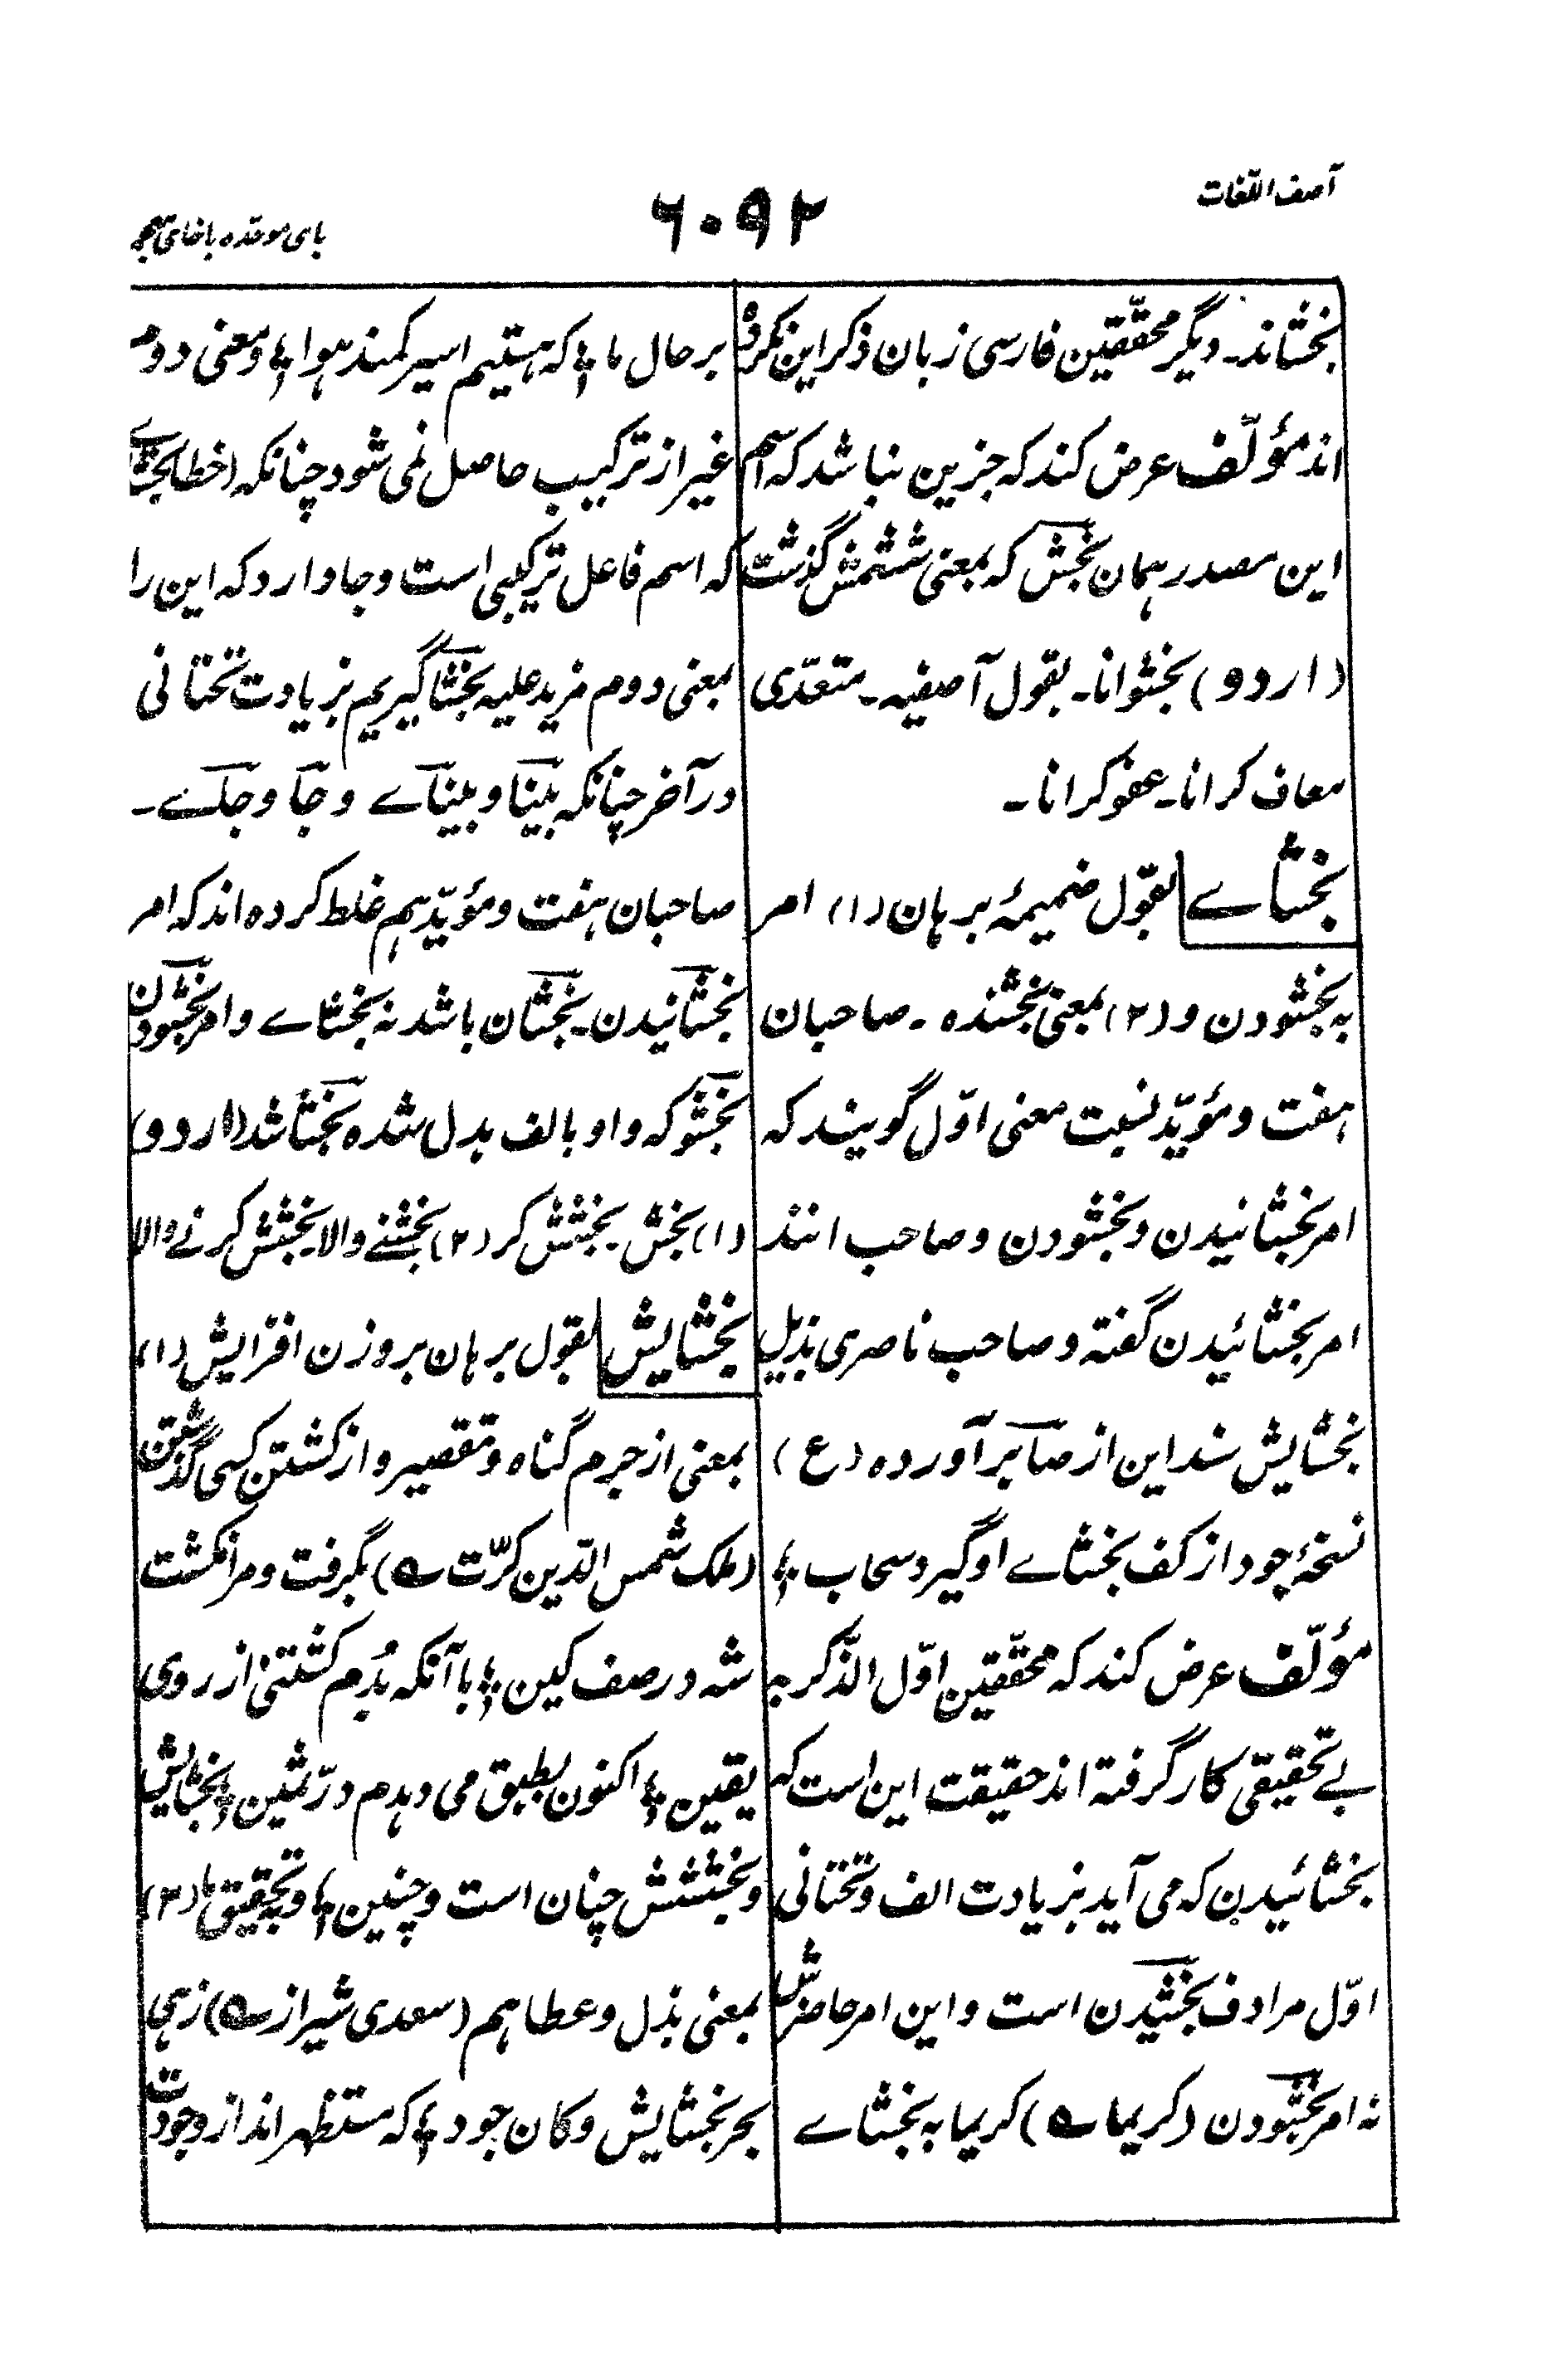 آصف اللغات
۶۰۹۲
بای موحّده باخای معجمه
بخشاند۔ دیگر محقّقین فارسی زبان ذکر این نکرده
اند مؤلّف عرض کند کہ جزین نباشد کہ اسم
این مصدر ہمان بخش کہ بمعنی ششمش گذشت
(اردو) بخشوانا۔ بقول آصفیہ۔ متعدّی
معاف کرانا۔ عفو کرانا۔
بخشاے بقول ضمیمۂ برہان (۱) امر
بہ بخشودن و (۲) بمعنی بخشندہ۔ صاحبان
ہفت و مؤیّد نسبت معنی اوّل گویند کہ
امر بخشانیدن و بخشودن و صاحب انند
امر بخشائیدن گفتہ و صاحب ناصری بذیل
بخشایش سند این از صابر آوردہ (ع)
نسخۂ جود از کف بخشاے او گیرد سحاب ؛
مؤلّف عرض کند کہ محقّقین اوّل الذّکر بہ
بے تحقیقی کار گرفتہ اند حقیقت این است کہ
بخشائیدن کہ می آید بزیادت الف و تحتانی
اوّل مرادف بخشیدن است و این امر حاضرش
نہ امر بخشودن (کریما ے) کریما بہ بخشاے
بر حال ما ؛ کہ ہستیم اسیر کمند ہوا ؛ و معنی دوم
غیر از ترکیب حاصل نمی شود چنانکہ (خطا بخشاے
کہ اسم فاعل ترکیبی است و جا دارد کہ این را
بمعنی دوم مزید علیہ بخشا گیریم بزیادت تحتانی
در آخر چنانکہ بینا و بیناے و جا و جاے۔
صاحبان ہفت و مؤیّد ہم غلط کردہ اند کہ امر
بخشانیدن۔ بخشان باشد نہ بخشاے و امر بخشودن
بخشو کہ واو بالف بدل شدہ بخشا شد (اردو)
(۱) بخش۔ بخشش کر (۲) بخشنے والا۔ بخشش کرنے والا
بخشایش بقول برہان بروزن افزایش (۱)
بمعنی از جرم گناہ و تقصیر و از کشتن کسی گذشتن
(ملک شمس الدّین کرّت ے) بگرفت و مرا نکشت
شہ در صف کین ؛ با آنکہ بُدم کشتنی از روی
یقین ؛ اکنون بطبق می دہدم درّ ثمین ؛ بخشایش
و بخشش چنان است و چنین ؛ و بتحقیق ما (۲)
بمعنی بذل و عطا ہم (سعدی شیراز ے) زہی
بحر بخشایش و کان جود ؛ کہ مستظہر اند از وجودت